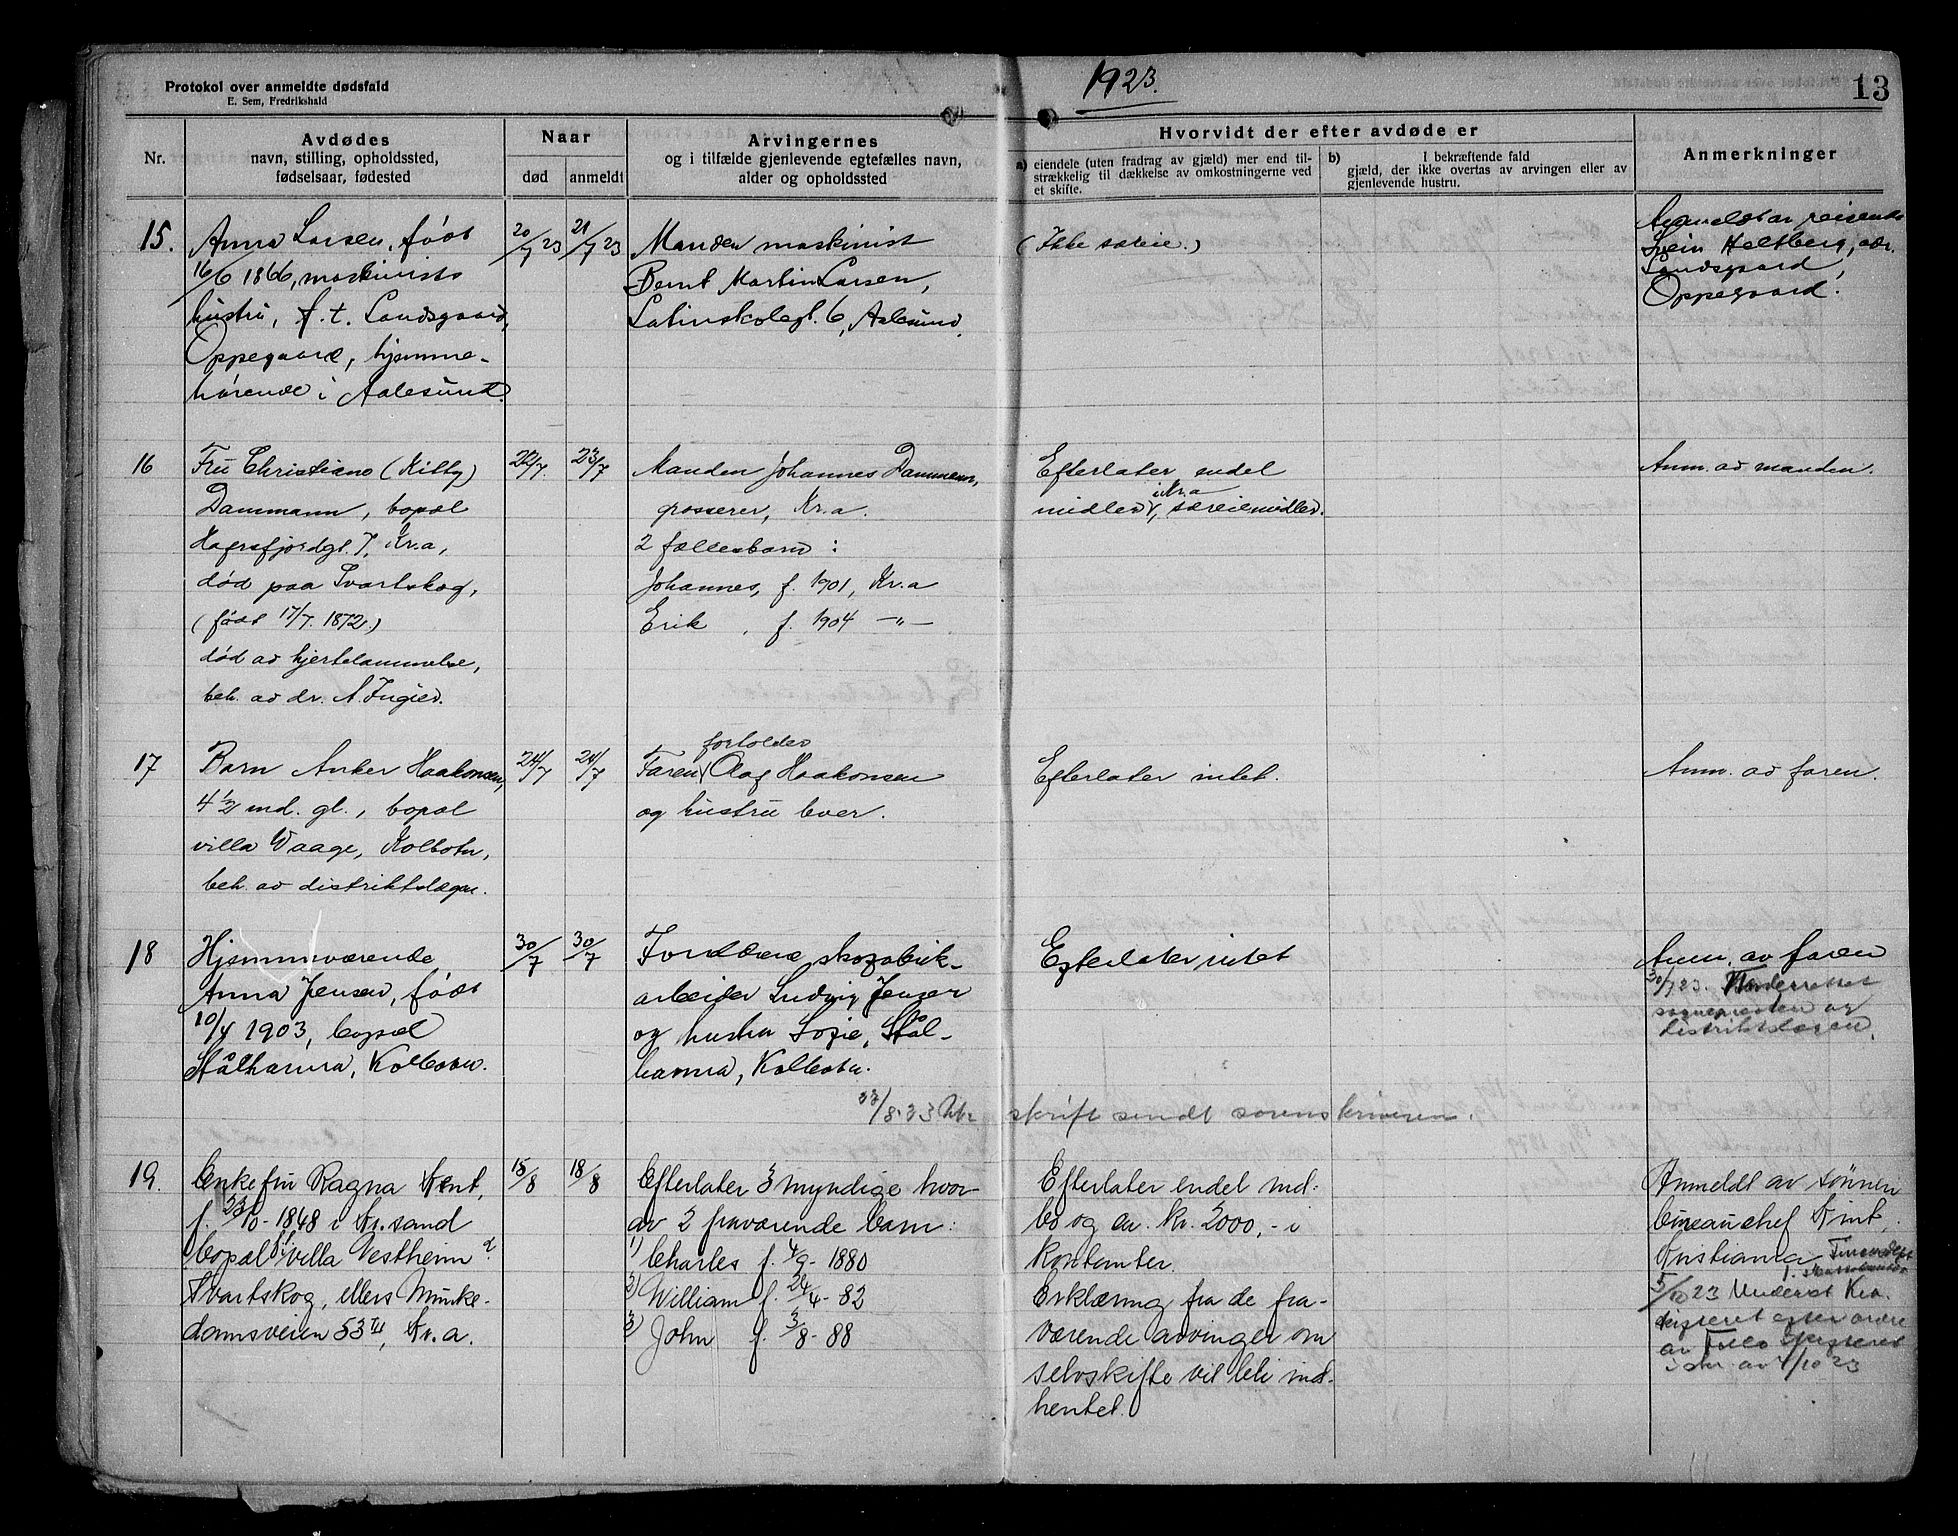 Protokol over anmeldte dødsfald
E. Sem, Fredrikshald
1923.
13
Nr.
Avdødes
navn, stilling, opholdssted,
fødselsaar, fødested
Naar
død
anmeldt
Arvingernes
og i tilfælde gjenlevende egtefælles navn,
alder og opholdssted
Hvorvidt der efter avdøde er
a) eiendele (uten fradrag av gjæld) mer end til-
strækkelig til dækkelse av omkostningerne ved
et skifte.
b) I bekræftende fald
gjæld, der ikke overtas av arvingen eller av
gjenlevende hustru.
Anmerkninger
15.
Anna Larsen, født
16/6 1866, maskinists
hustru, f. t. Sandsgaard,
Oppegaard, hjemme-
hørende i Aalesund.
20/7 23
21/7 23
Manden maskinist
Bernt Martin Larsen,
Latinskolegt. 6, Aalesund.
(Ikke særeie.)
Anmeldt av reisende
Svein Heltberg, adr.
Sandsgaard,
Oppegaard.
16
Fru Christiane (Kitty)
Dammann, bopæl
Hafrsfjordgt. 7, Kr.a,
død paa Svartskog,
(født 17/7. 1872.)
død av hjertelammelse,
beh. av dr. A. Ingier.
22/7.
23/7
Manden Johannes Dammann,
grosserer, Kr.a.
2 fællesbarn:
Johannes, f. 1901, Kr.a
Erik, f. 1904 —"—
Efterlater endel
i Kr.a
midler, særeiemidler.
Anm. av manden.
17
Barn Anker Haakonsen,
4 1/2 md. gl., bopæl
villa Waage, Kolbotn,
beh. av distriktslægen.
24/7
24/7
forholder
Faren Olaf Haakonsen
og hustru lever.
Efterlater intet.
Anm. av faren.
18
Hjemmeværende
Anna Jensen, født
10/4 1903, bopæl
Stålhanna, Kolbotn.
30/7
30/7
Forældrene skofabrik-
arbeider Ludvig Jensen
og hustru Sofie, Stål-
hanna, Kolbotn.
Efterlater intet
Anm. av faren
30/7 23. Underrettet
sognepresten og
distriktslægen.
22/8.23 Utskrift sendt sorenskriveren.
19.
Enkefru Ragna Kent,
f. 23/10- 1848 i Kr.sand
bopæl villa Vestheim
Svartskog, ellers Munke-
damsveien 53 III, Kr.a.
15/8
18/8
Efterlater 3 myndige hvor-
av 2 fraværende barn:
1) Charles f. 4/9- 1880
2) William f. 24/4- 82
3) John f. 3/8- 88
Efterlater endel ind-
bo og ca. kr. 2000,- i
kontanter.
Erklæring fra de fra-
værende arvinger om
selvskifte vil bli ind-
hentet.
Anmeldt av sønnen
bureauchef Kint,
Kristiania
5/10 23 Underret Kra.
skifteret efter ordre
av Follo skifteret
i skr. av 4/10 23